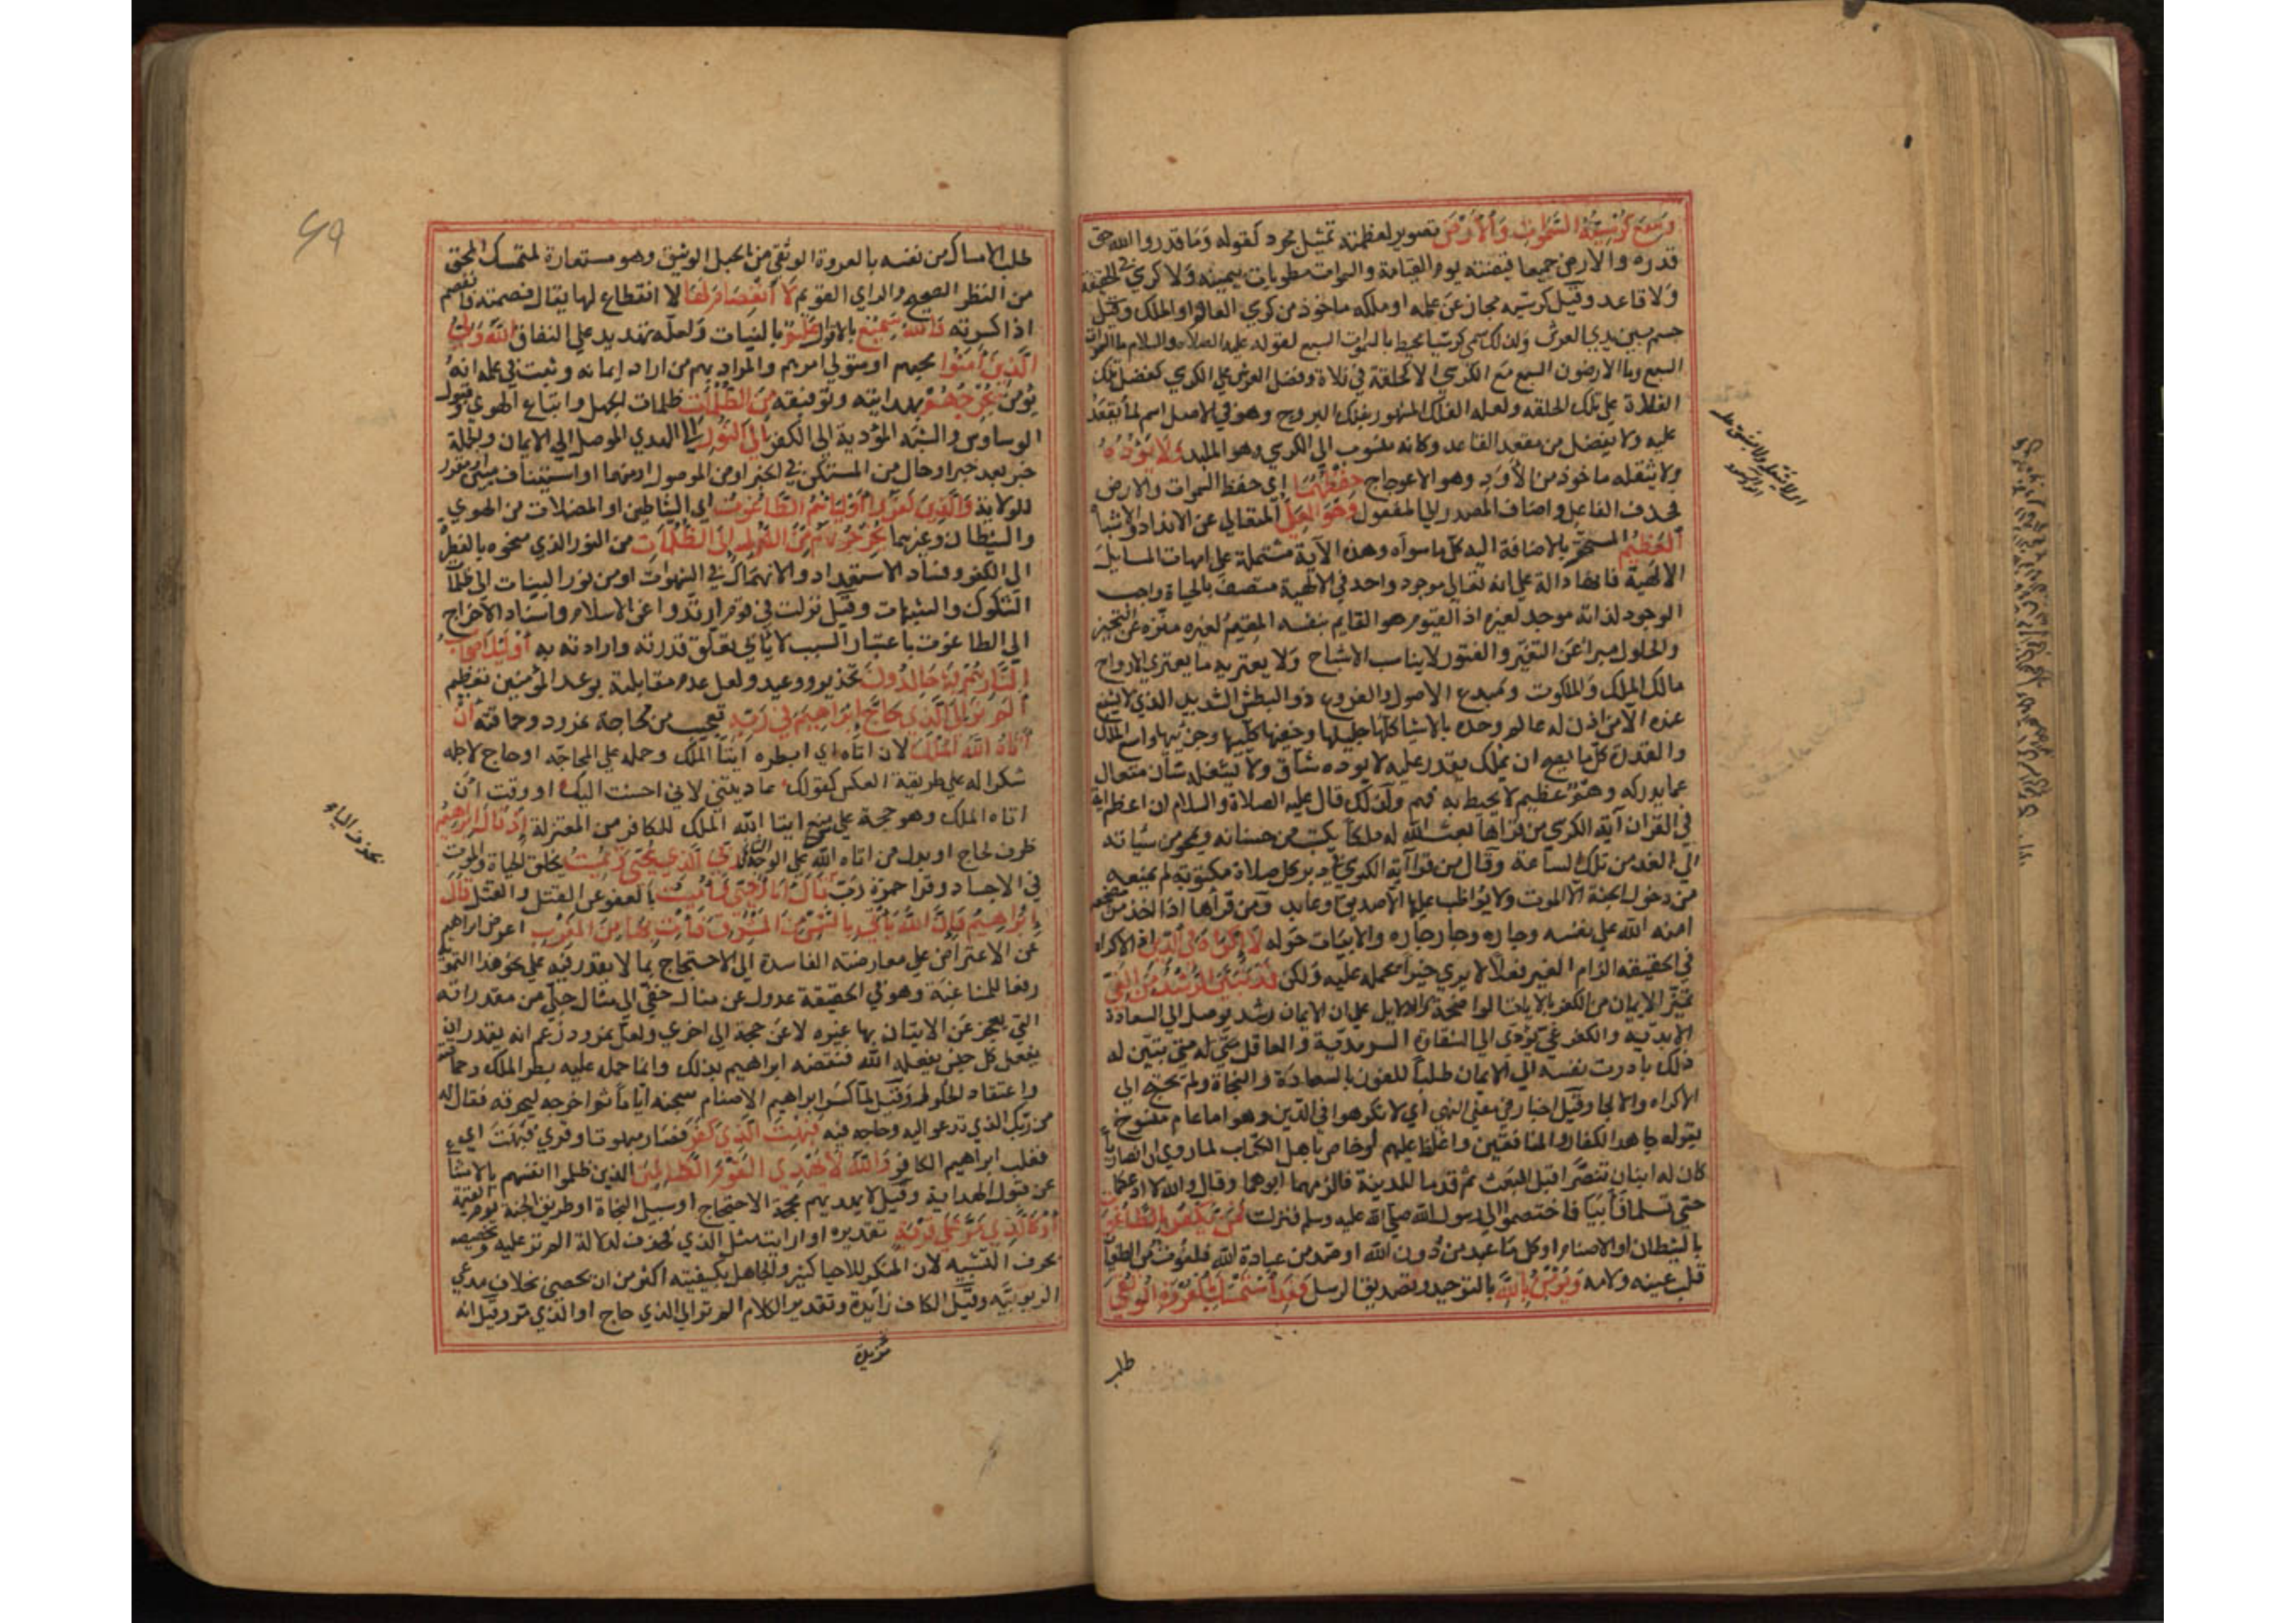 وَسِعَ كُرْسِيُّهُ السَّمَوَاتِ وَالْأَرْضَ تصوير لعظمته تمثيل مجرد كقوله وما قدروا الله حق
قدره والارض جميعا قبضته يوم القيامة والسموات مطويات بيمينه ولا كرسي في الحقيقة
ولا قاعد وقيل كرسيه مجاز عن علمه او ملكه ماخوذ من كرسي العالم او الملك وقيل
جسم بين يدي العرش ولذلك سمي كرسيا محيط بالسموات السبع لقوله عليه الصلاة والسلام ما السموات
السبع وما الارضون السبع مع الكرسي الا كحلقة في فلاة وفضل العرش على الكرسي كفضل تلك
الفلاة على تلك الحلقة ولعله الفلك المشهور بفلك البروج وهو في الاصل اسم لما يقعد
عليه ولا يفضل من مقعد القاعد وكانه منسوب الى الكرسي وهو الملبد وَلَا يَؤُدُهُ
ولا يثقله ماخوذ من الأَوَد وهو الاعوجاج حِفْظُهُمَا اي حفظ السموات والارض
فحذف الفاعل واضاف المصدر الى المفعول وَهُوَ الْعَلِيُّ المتعالي عن الانداد والاشباه
الْعَظِيمُ المستحقر بالاضافة اليه كل ما سواه وهذه الآية مشتملة على امهات المسايل
الالهية فانها دالة على انه تعالى موجود واحد في الالهية متصف بالحياة واجب
الوجود لذاته موجد لغيره اذ القيوم هو القايم بنفسه المقيم لغيره منزه عن التحيز
والحلول مبرا عن التغير والفتور لا يناسب الاشباح ولا يعتريه ما يعتري الارواح
مالك الملك والملكوت ومبدع الاصول والفروع ذو البطش الشديد الذي لا يشفع
عنده الا من اذن له عالم وحده بالاشيا كلها جليها وخفيها كليها وجزئيها واسع الملك
والقدرة كل ما يصح ان يملك ويقدر عليه لا يوده شاق ولا يشغله شان متعال
عما يدركه وهم عظيم لا يحيط به فهم ولذلك قال عليه الصلاة والسلام ان اعظم اية
في القران آية الكرسي من قراها بعث الله له ملكا يكتب من حسناته ويمحو من سيئاته
الى الغد من تلك الساعة وقال من قرا آية الكرسي في دبر كل صلاة مكتوبة لم يمنعه
من دخول الجنة الا الموت ولا يواظب عليها الا صديق او عابد ومن قرأها اذا اخذ من مضجعه
امنه الله على نفسه وجاره وجار جاره والابيات حوله لَا إِكْرَاهَ فِي الدِّينِ اذ الاكراه
في الحقيقة الزام الغير فعلا لا يرى خيرا يحمله عليه ولكن قَدْ تَبَيَّنَ الرُّشْدُ مِنَ الْغَيِّ
تميز الايمان من الكفر بالايات الواضحة والدلايل على ان الايمان رشد يوصل الى السعادة
الابدية والكفر غي يودي الى الشقاوة السرمدية والعاقل متى تبين له
ذلك بادرت نفسه الى الايمان طلبا للفوز بالسعادة والنجاة ولم يحتج الى
الاكراه والالجا وقيل اخبار في معنى النهي اي لا تكرهوا في الدين وهو اما عام منسوخ
بقوله جاهد الكفار والمنافقين واغلظ عليهم او خاص باهل الكتاب لما روي ان انصاريا
كان له ابنان تنصرا قبل المبعث ثم قدما المدينة فلزمهما ابوهما وقال والله لا ادعكما
حتى تسلما فأبيا فاختصموا الى رسول الله صلى الله عليه وسلم فنزلت فَمَنْ يَكْفُرْ بِالطَّاغُوتِ
بالشيطان او الاصنام او كل ما عبد من دون الله او صد عن عبادة الله فلعوت من الطغيان
قلب عينه ولامه وَيُؤْمِنْ بِاللَّهِ بالتوحيد وتصديق الرسل فَقَدِ اسْتَمْسَكَ بِالْعُرْوَةِ الْوُثْقَى
طلب
طلب الامساك من نفسه بالعروة الوثقى من الحبل الوثيق وهو مستعارة لمتمسك المحق
من النظر الصحيح والراي القويم لَا انْفِصَامَ لَهَا لا انقطاع لها يقال فصمته فانفصم
اذا كسرته وَاللَّهُ سَمِيعٌ بالاقوال عَلِيمٌ بالنيات ولعله تهديد على النفاق اللَّهُ وَلِيُّ
الَّذِينَ آمَنُوا محبهم او متولي امرهم والمراد بهم من اراد ايمانه وثبت في علمه انه
يؤمن يُخْرِجُهُمْ بهدايته وتوفيقه مِنَ الظُّلُمَاتِ ظلمات الجهل واتباع الهوى وقبول
الوساوس والشبه المؤدية الى الكفر إِلَى النُّورِ الى الهدى الموصل الى الايمان والجملة
خبر بعد خبر او حال من المستكن في الخبر او من الموصول او منهما او استيناف مبين او مقرر
للولاية وَالَّذِينَ كَفَرُوا أَوْلِيَاؤُهُمُ الطَّاغُوتُ اي الشياطين او المضلات من الهوى
والشيطان وغيرهما يُخْرِجُونَهُمْ مِنَ النُّورِ إِلَى الظُّلُمَاتِ من النور الذي منحوه بالفطرة
الى الكفر وفساد الاستعداد والانهماك في الشهوات او من نور البينات الى ظلمات
الشكوك والشبهات وقيل نزلت في قوم ارتدوا عن الاسلام واسناد الاخراج
الى الطاغوت باعتبار السبب لا يأبى تعلق قدرته وارادته به أُولَئِكَ أَصْحَابُ
النَّارِ هُمْ فِيهَا خَالِدُونَ تحذير ووعيد ولعل عدم مقابلته بوعد المؤمنين تعظيم
أَلَمْ تَرَ إِلَى الَّذِي حَاجَّ إِبْرَاهِيمَ فِي رَبِّهِ تعجب من محاجة نمرود وحماقته أَنْ
آتَاهُ اللَّهُ الْمُلْكَ لان اتاه اي ابطره ايتا الملك وحمله على المحاجه او حاج لاجله
شكرا له على طريقة العكس كقولك عاديتني لاني احسنت اليك او وقت ان
اتاه الملك وهو حجة على من منع ايتا الله الملك للكافر من المعتزلة إِذْ قَالَ إِبْرَاهِيمُ
ظرف لحاج او بدل من اتاه الله على الوجه الثاني رَبِّيَ الَّذِي يُحْيِي وَيُمِيتُ بخلق الحياة والموت
في الاجساد وقرا حمزة رب قَالَ أَنَا أُحْيِي وَأُمِيتُ بالعفو عن القتل والقتل قَالَ
إِبْرَاهِيمُ فَإِنَّ اللَّهَ يَأْتِي بِالشَّمْسِ مِنَ الْمَشْرِقِ فَأْتِ بِهَا مِنَ الْمَغْرِبِ اعرض ابراهيم
عن الاعتراض على معارضته الفاسدة الى الاحتجاج بما لا يقدر فيه على نحو هذا التمويه
رفعا للمشاغبة وهو في الحقيقة عدول عن مثال خفي الى مثال جلي من مقدوراته
التي يعجز عن الاتيان بها غيره لا عن حجة الى اخرى ولعل نمرود زعم انه يقدر ان
يفعل كل جنس يفعله الله فنقضه ابراهيم بذلك وانما حمل عليه بطر الملك وحماقته
واعتقاد الحلول وقيل لما كسر ابراهيم الاصنام سجنه اياما ثم اخرجه ليحرقه فقال له
من ربك الذي تدعو اليه وحاجه فيه فَبُهِتَ الَّذِي كَفَرَ فصار مبهوتا وقرئ فبهت اي
فغلب ابراهيم الكافر وَاللَّهُ لَا يَهْدِي الْقَوْمَ الظَّالِمِينَ الذين ظلموا انفسهم بالامتناع
عن قبول الهداية وقيل لا يهديهم محجة الاحتجاج او سبيل النجاة او طريق الجنة يوم القيمة
أَوْ كَالَّذِي مَرَّ عَلَى قَرْيَةٍ تقديره او ارايت مثل الذي فحذف لدلالة الم تر عليه وتخصيصه
بحرف التشبيه لان المنكر للاحيا كثير والجاهل بكيفيته اكثر من ان يحصى بخلاف مدعي
الربوبية وقيل الكاف زايدة وتقدير الكلام الم تر الى الذي حاج او الذي مر وقيل انه
بحذف الياء